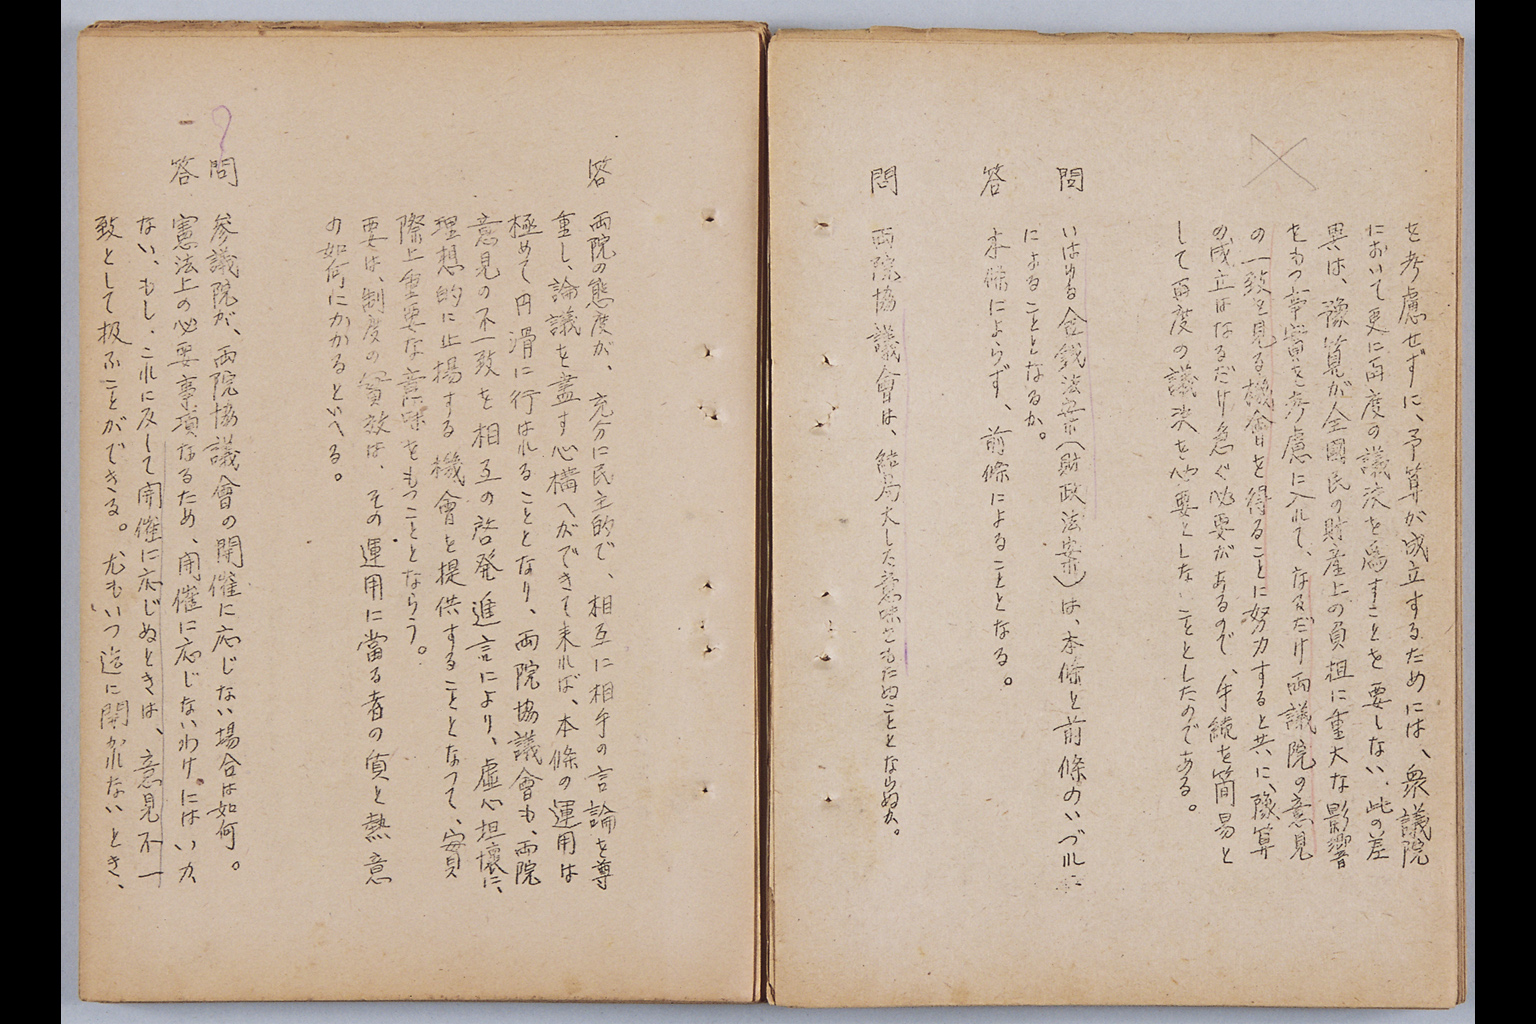 を考慮せずに、予算が成立するためには、衆議院
において更に再度の議決を爲すことを要しない、此の差
異は、豫算が全國民の財産上の負担に重大な影響
をもつ事實を考慮に入れて、なるだけ両議院の意見
の一致を見る機會を得ることに努力すると共に、豫算
の成立はなるだけ急ぐ必要があるので、手續を簡易と
して再度の議決を必要としないことゝしたのである。
問 いはゆる金銭法案(財政法案)は、本條と前條のいづれに
よることゝなるか。
答 本條によらず、前條によることゝなる。
問 両院協議會は、結局大した意味をもたぬことゝならぬか。
答 両院の態度が、充分に民主的で、相互に相手の言論を尊
重し、論議を盡す心構へができて来れば、本條の運用は
極めて円滑に行はれることゝなり、両院協議會も、両院
意見の不一致を相互の啓発進言により、虚心坦懐に、
理想的に止揚する機會を提供することゝなつて、實
際上重要な意味をもつことゝならう。
要は、制度の實効は、その運用に當る者の質と熱意
の如何にかかるといへる。
?
問 参議院が、両院協議會の開催に応じない場合は如何。
答 憲法上の必要事項なるため、開催に応じないわけにはいか
ない、もし、これに反して開催に応じぬときは、意見不一
致として扱ふことができる。尤もいつ迄に開かれないとき、